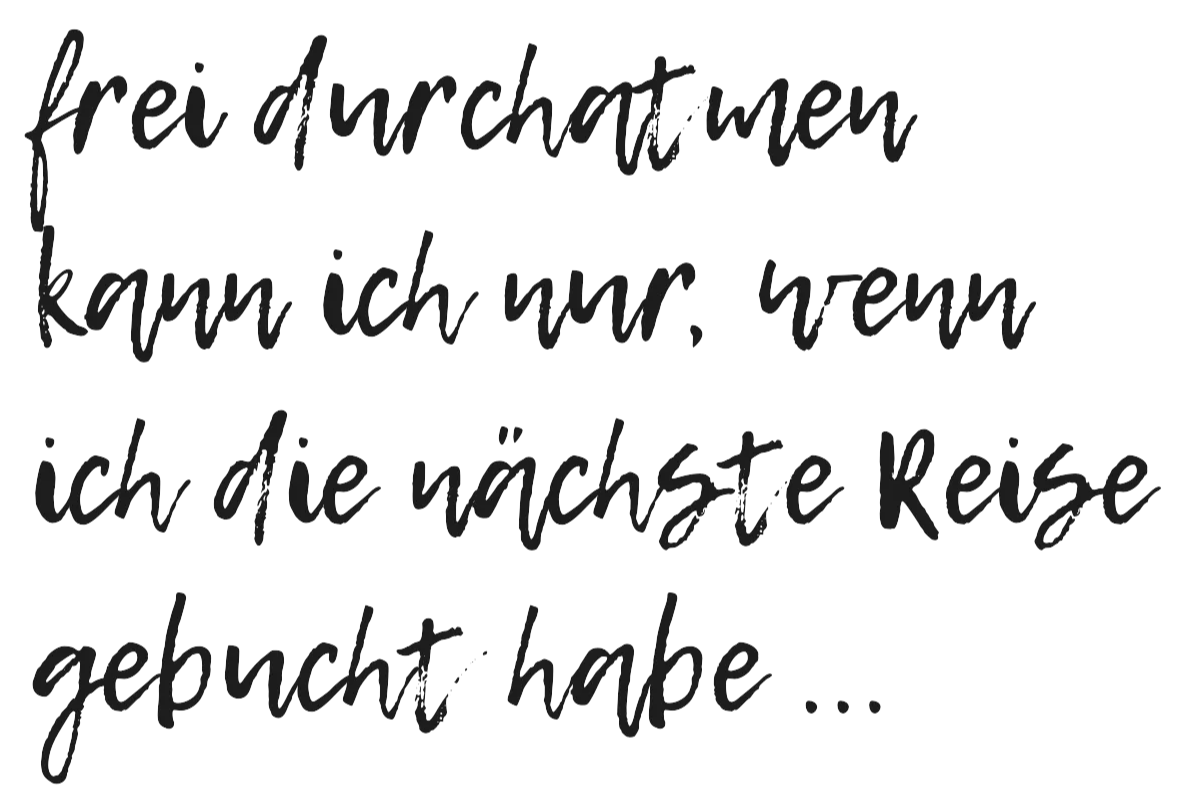 frei durchatmen
kann ich nur, wenn
ich die nächste Reise
gebucht habe ...